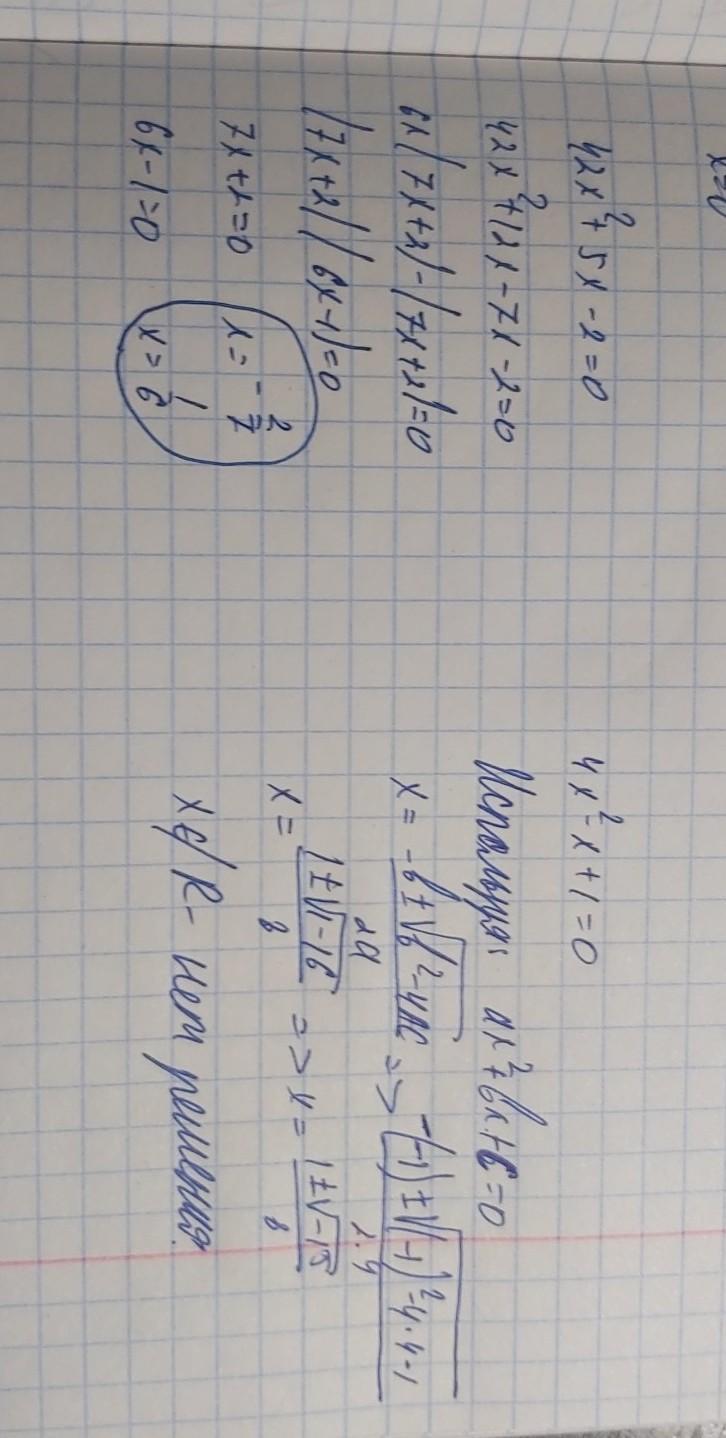 x=0
42x²+5x-2=0
42x²+12x-7x-2=0
6x(7x+2)-(7x+2)=0
(7x+2)(6x-1)=0
7x+2=0 x=-2/7
6x-1=0 x=1/6
4x²-x+1=0
Используя: ax²+bx+c=0
x = -b±√b²-4ac / 2a => -(-1)±√(-1)²-4·4·1 / 2·4
x = 1±√1-16 / 8 => x = 1±√-15 / 8
x∉R - нет решения.